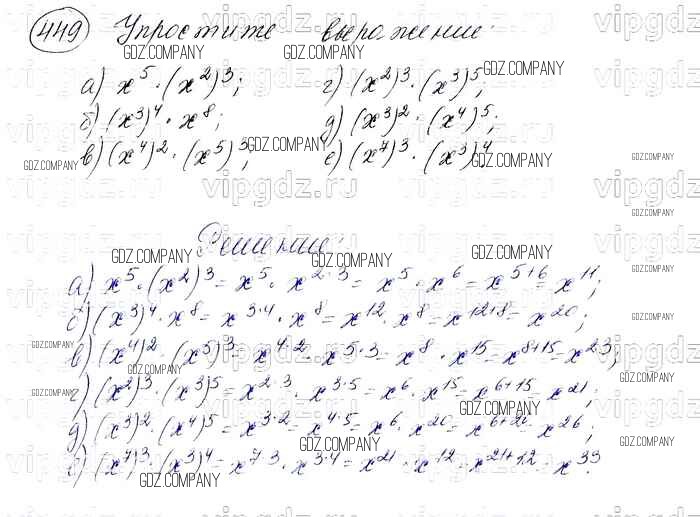 449 Упростите выражение
а) x⁵ · (x²)³; г) (x²)³ · (x³)⁵;
б) (x³)⁴ · x⁸; д) (x³)² · (x⁴)⁵;
в) (x⁴)² · (x⁵)³; е) (x⁷)³ · (x³)⁴.
Решение:
а) x⁵ · (x²)³ = x⁵ · x²·³ = x⁵ · x⁶ = x⁵⁺⁶ = x¹¹;
б) (x³)⁴ · x⁸ = x³·⁴ · x⁸ = x¹² · x⁸ = x¹²⁺⁸ = x²⁰;
в) (x⁴)² · (x⁵)³ = x⁴·² · x⁵·³ = x⁸ · x¹⁵ = x⁸⁺¹⁵ = x²³;
г) (x²)³ · (x³)⁵ = x²·³ · x³·⁵ = x⁶ · x¹⁵ = x⁶⁺¹⁵ = x²¹;
д) (x³)² · (x⁴)⁵ = x³·² · x⁴·⁵ = x⁶ · x²⁰ = x⁶⁺²⁰ = x²⁶;
е) (x⁷)³ · (x³)⁴ = x⁷·³ · x³·⁴ = x²¹ · x¹² = x²¹⁺¹² = x³³.
GDZ.COMPANY
vipgdz.ru